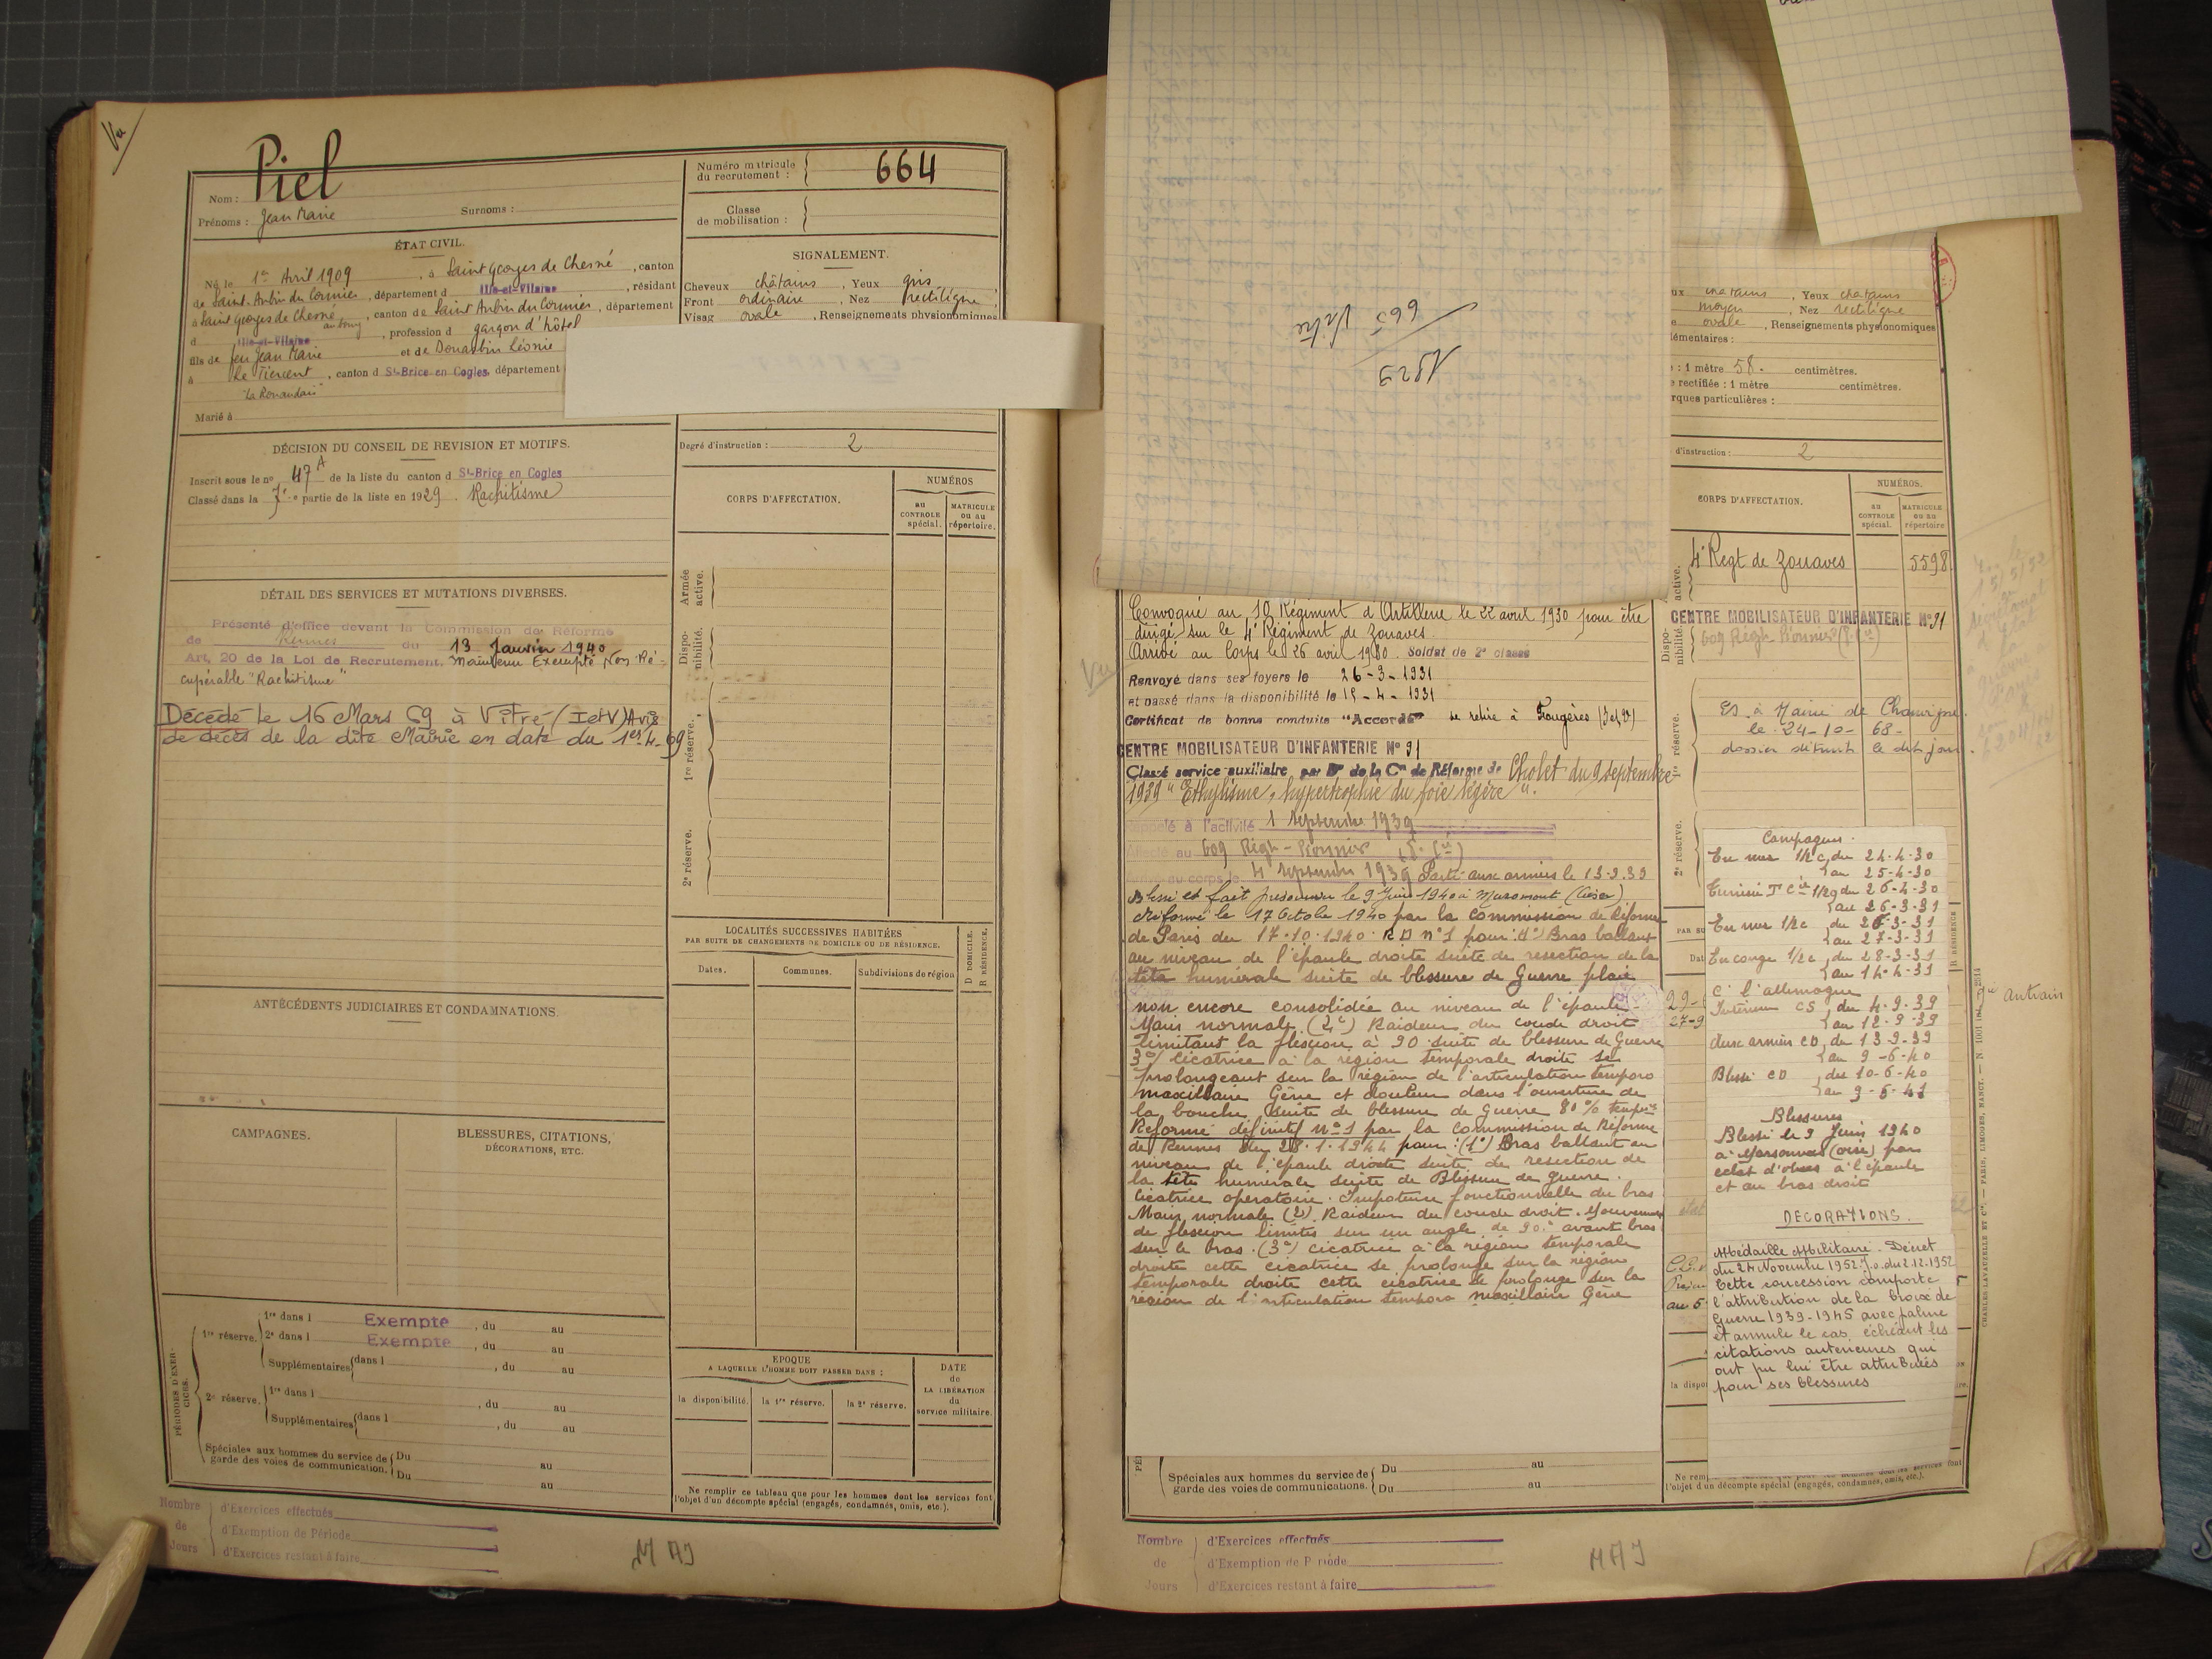 Vu
Nom : Piel
Prénoms : Jean Marie Surnoms :
Numéro matricule du recrutement : 664
Classe de mobilisation :
ÉTAT CIVIL.
Né le 1er Avril 1909, à Saint Georges de Chesné, canton
de Saint-Aubin du Cormier, département d Ille-et-Vilaine, résidant
à Saint Georges de Chesné, canton de Saint Aubin du Cormier, département
au bourg
d Ille-et-Vilaine, profession d garçon d'hôtel
fils de feu Jean Marie et de Douabin Léonie
à Le Tiercent, canton d St-Brice en Cogles, département
Marié à
SIGNALEMENT.
Cheveux châtains, Yeux gris
Front ordinaire, Nez rectiligne
Visag ovale, Renseignements physionomiques
DÉCISION DU CONSEIL DE REVISION ET MOTIFS.
Inscrit sous le n° 47 A de la liste du canton d St-Brice en Cogles
Classé dans la 7e partie de la liste en 1929. Rachitisme
DÉTAIL DES SERVICES ET MUTATIONS DIVERSES.
Présenté d'office devant la Commission de Réforme
de Rennes du 13 Janvier 1940
Art. 20 de la Loi de Recrutement. Maintenu Exempté Non Ré-
cupérable "Rachitisme"
Décédé le 16 Mars 69 à Vitré (I et V) Avis
de décès de la dite Mairie en date du 1er-4-69
ANTÉCÉDENTS JUDICIAIRES ET CONDAMNATIONS.
CAMPAGNES.
BLESSURES, CITATIONS,
DÉCORATIONS, ETC.
PÉRIODES D'EXERCICES.
1re réserve. 1re dans l Exempté, du au
2e dans l Exempté, du au
Supplémentaires dans l, du au
2e réserve. 1re dans l, du au
Supplémentaires dans l, du au
Spéciales aux hommes du service de garde des voies de communication. Du au
Du au
Nombre de Jours
d'Exercices effectués
d'Exemption de Période
d'Exercices restant à faire
MAJ
Degré d'instruction : 2
CORPS D'AFFECTATION.
NUMÉROS
au CONTROLE spécial.
MATRICULE ou au répertoire.
Armée active.
Disponibilité.
1re réserve.
2e réserve.
LOCALITÉS SUCCESSIVES HABITÉES
PAR SUITE DE CHANGEMENTS DE DOMICILE OU DE RÉSIDENCE.
Dates. Communes. Subdivisions de région
D DOMICILE.
R RÉSIDENCE.
EPOQUE
A LAQUELLE L'HOMME DOIT PASSER DANS :
la disponibilité. la 1re réserve. la 2e réserve.
DATE de LA LIBÉRATION du service militaire.
Ne remplir ce tableau que pour les hommes dont les services font
l'objet d'un décompte spécial (engagés, condamnés, omis, etc.).
1929
665 Vitré
Convoqué au 10 Régiment d'Artillerie le 22 avril 1930 pour être
dirigé sur le 4e Régiment de Zouaves.
Arrivé au Corps le 26 avril 1930. Soldat de 2e classe
Renvoyé dans ses foyers le 26-3-1931
et passé dans la disponibilité le 15-4-1931
Certificat de bonne conduite "Accordé" se retire à Fougères (I et V)
CENTRE MOBILISATEUR D'INFANTERIE N° 91
Classé service auxiliaire par Don de la Con de Réforme de Cholet du 9 septembre
1939 "Ethylisme, hypertrophie du foie légère".
Rappelé à l'activité 1 septembre 1939
Affecté au 609 Régt Pionnier
Arrivé au corps le 4 septembre 1939 Parti aux armées le 13.9.39
Blessé et fait prisonnier le 9 Juin 1940 à (Oise)
Réformé le 17 Octobre 1940 par la Commission de Réforme
de Paris du 17.10.1940. RD n°1 pour : 1°) Bras ballant
au niveau de l'épaule droite suite de résection de la
tête humérale suite de blessure de Guerre plaie
non encore consolidée au niveau de l'épaule
Main normale. (2°) Raideur du coude droit
limitant la flexion à 90 suite de blessure de Guerre
3°) cicatrice à la région temporale droite se
prolongeant sur la région de l'articulation temporo
maxillaire Gêne et douleur dans l'ouverture de
la bouche suite de blessure de Guerre 80% tempre
Réformé définitif n°1 par la Commission de Réforme
de Rennes du 28.1.1944 pour : (1°) Bras ballant au
niveau de l'épaule droite suite de résection de
la tête humérale suite de Blessure de guerre.
cicatrice opératoire. Impotence fonctionnelle du bras
Main normale (2) Raideur du coude droit. Mouvement
de flexion limités sur un angle de 90° avant bras
sur le bras. (3°) cicatrice à la région temporale
droite cette cicatrice se prolonge sur la région
temporale droite cette cicatrice se prolonge sur la
région de l'articulation temporo maxillaire Gêne
Spéciales aux hommes du service de garde des voies de communications. Du au
Du au
Nombre de Jours
d'Exercices effectués
d'Exemption de Période
d'Exercices restant à faire
MAJ
ux chatains, Yeux chatains
moyen, Nez rectiligne
e ovale, Renseignements physionomiques
lémentaires :
: 1 mètre 58. centimètres.
e rectifiée : 1 mètre centimètres.
rques particulières :
d'instruction : 2
CORPS D'AFFECTATION.
NUMÉROS.
au CONTROLE spécial.
MATRICULE ou au répertoire
active. 4e Regt de Zouaves 5598
CENTRE MOBILISATEUR D'INFANTERIE N° 91
Disponibilité. 609 Régt Pionnier
réserve.
à Mairie de Chauvigné
le 24-10-68-
dossier détruit le dit jour.
2e réserve.
Campagnes.
En mer 1/2c du 24.4.30
au 25.4.30
Tunisie 1/2 du 26.4.30
au 26.3.31
En mer 1/2c du 26.3.31
au 27.3.31
En congé 1/2c du 28.3.31
au 14.4.31
C. l'allemagne
Intérieur CS du 4.9.39
au 12.9.39
aux armées CD du 13.9.39
au 9-6-40
Blessé CD du 10-6-40
au 9-6-41
Blessures
Blessé le 9 Juin 1940
à (oise) par
éclat d'obus à l'épaule
et au bras droit
DECORATIONS.
Médaille Militaire. Décret
du 24 Novembre 1952 J.o. du 2.12.1952
Cette concession comporte
l'attribution de la Croix de
Guerre 1939-1945 avec palme
et annule le cas échéant les
citations antérieures qui
ont pu lui être attribuées
pour ses blessures
Antrain
Ne rem
l'objet d'un décompte spécial (engagés, condamnés, omis, etc.).